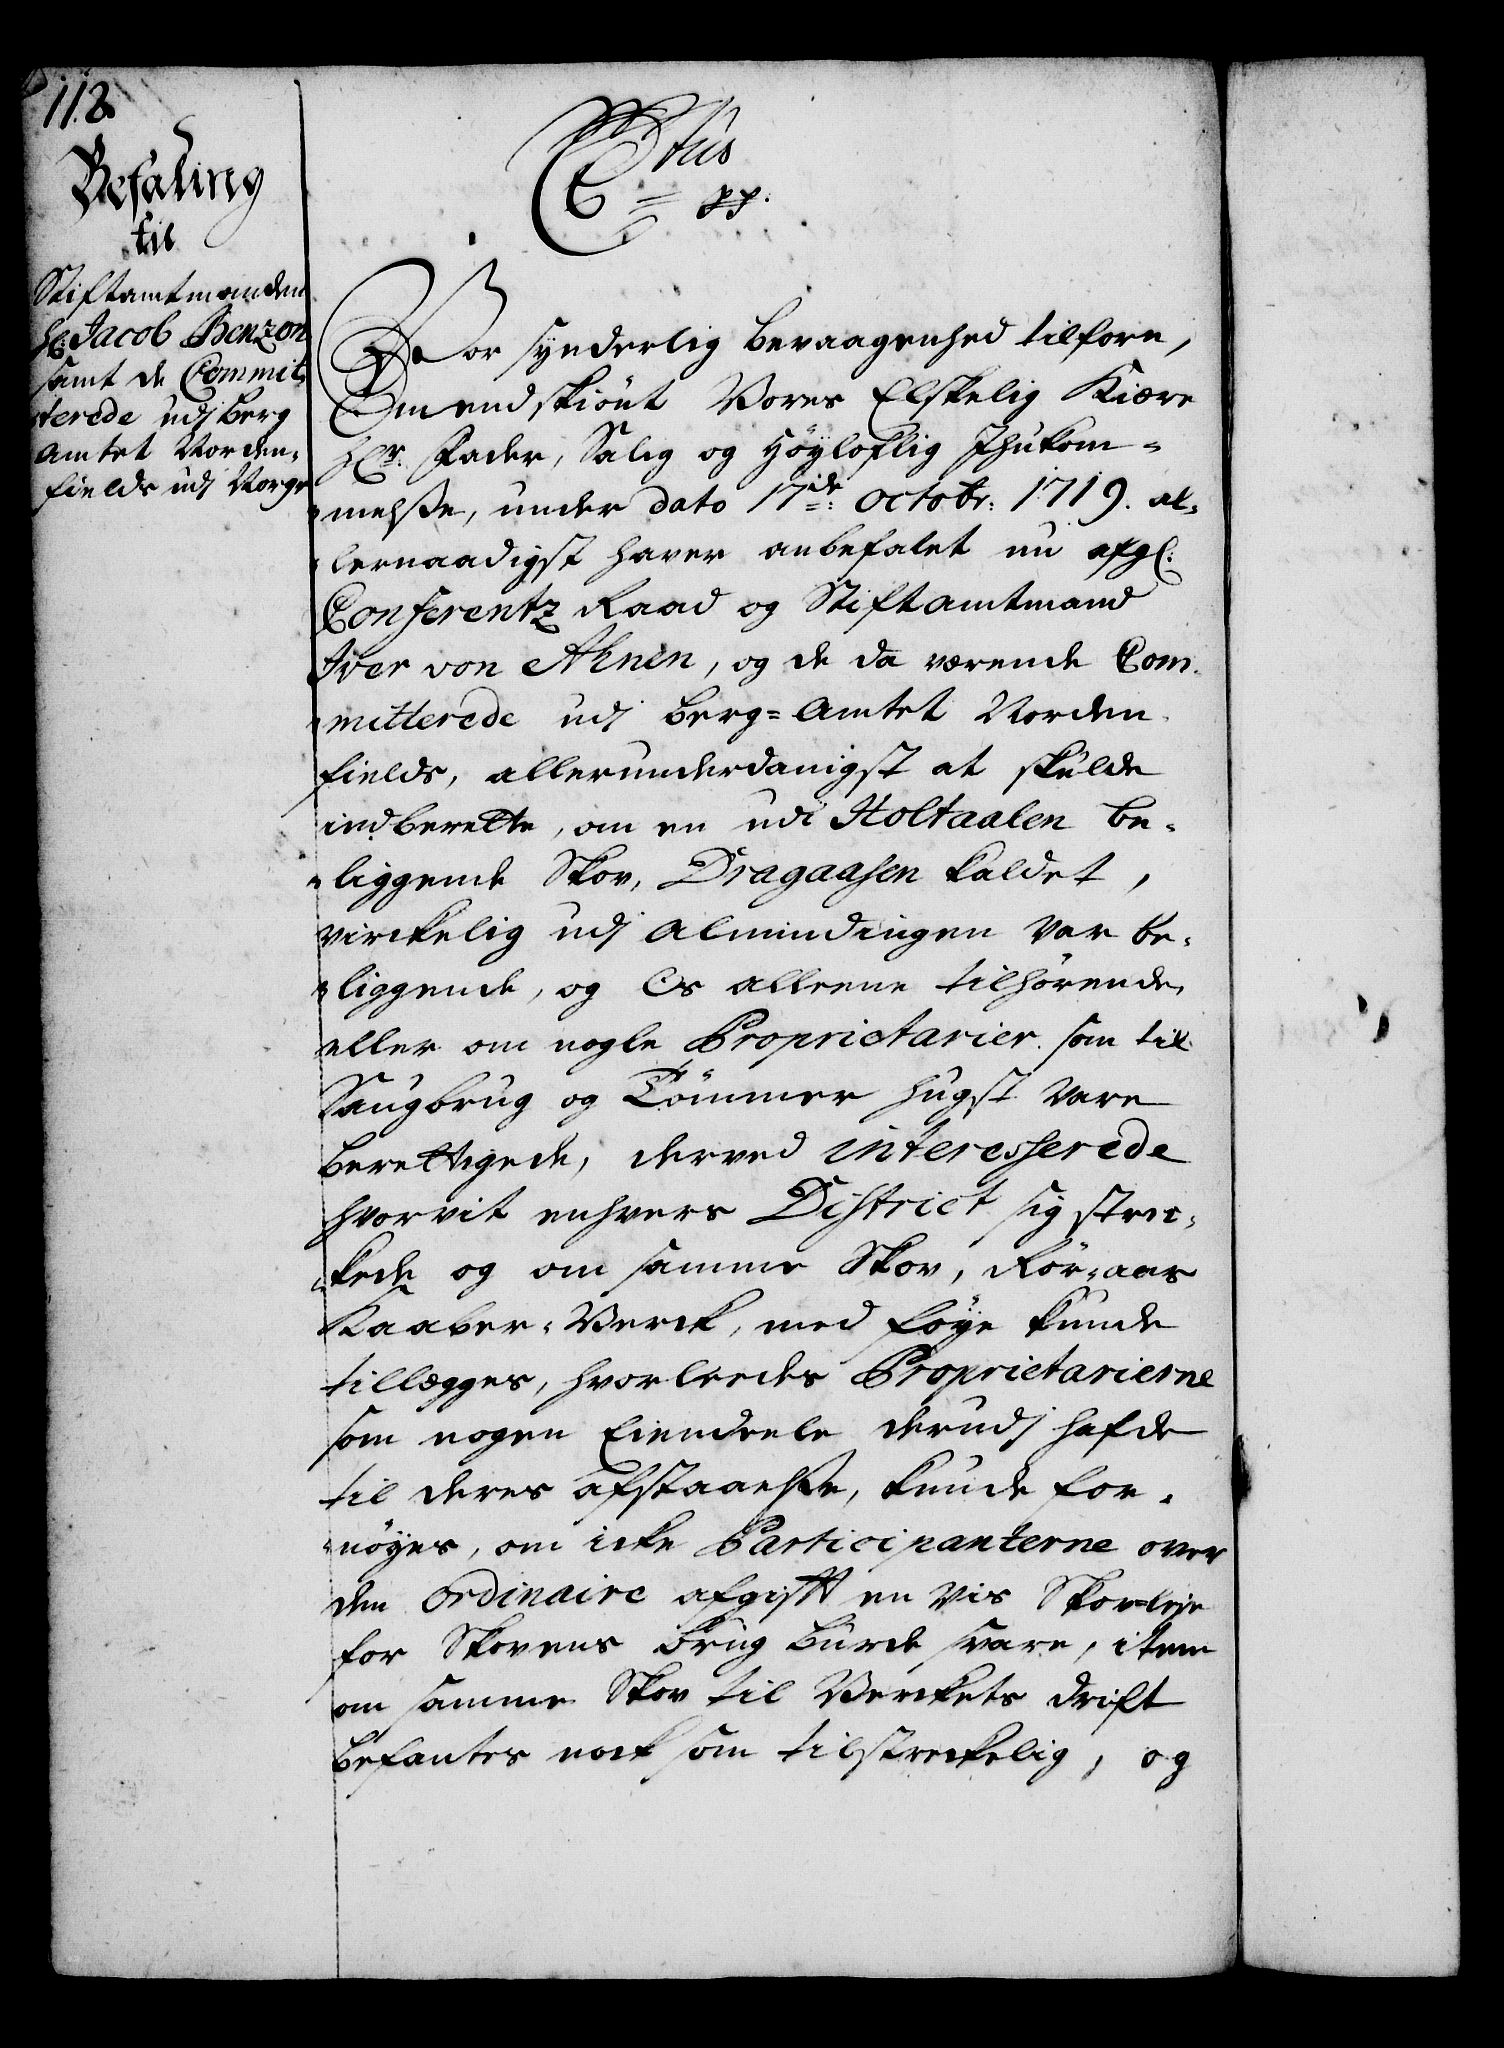 118
Befaling
til
Stiftamtmanden
Hr: Jacob Benzon
samt de Commit-
terede udj Berg
Amtet Norden-
fields udj Norge
C 6tus
pp.
Vor synderlig bevaagenhed tilforn,
Omendskiönt Vores Elskelig Kiære
Hr: Fader, Salig og Höyloflig Ihukom-
melsse, under dato 17de: Octobr: 1719. al-
lernaadigst haver anbefalet nu afgl:
Conferentz Raad og Stiftamtmand
Iver von Ahnen, og de da værende Com-
mitterede udj Berg-Amtet Norden-
fields, allerunderdanigst at skulde
indberette, om en udi Holtaalen be-
liggende Skov, Dragaasen kaldet,
virckelig udj Almindingen var be-
liggende, og Os alleene tilhörende,
eller om nogle Proprietarier som til
Saugbrug og Tömmer hugst vare
berettigede, derved interesserede
hvorvit enhvers District sig strec-
kede og om samme Skov, Rör-aas
Kaaber-Verck, med föye kunde
tillægges, hvorleedes Proprietarierne
som nogen Eiendeele derudj hafde
til deres afstaaelsse, kunde for-
nöyes, om icke Participanterne over
den ordinaire afgift en vis Skov-leje
for Skovens brug burde svare, item
om samme Skov til Verckets drift
befantes nock som tilstreckelig, og